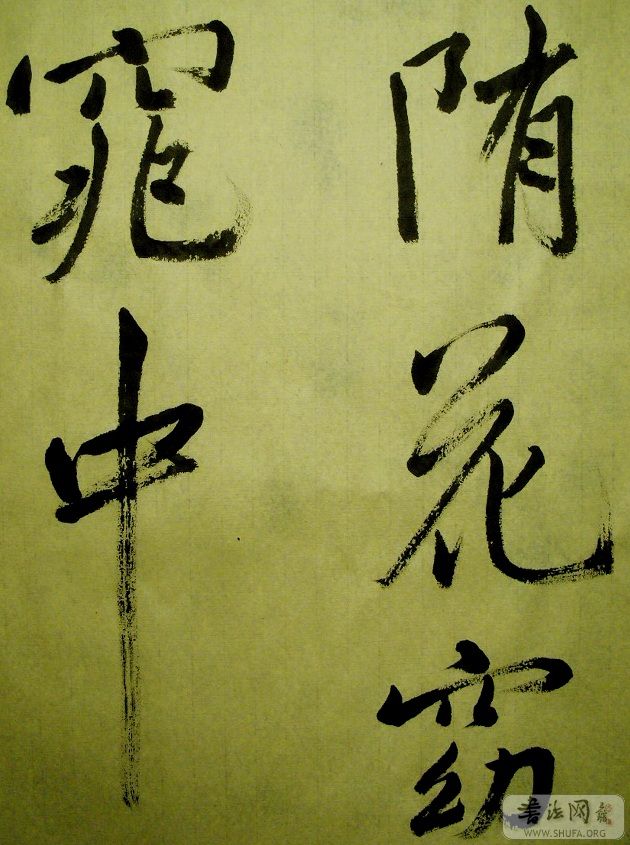 陏花窈
窕中
書法网
WWW.SHUFA.ORG